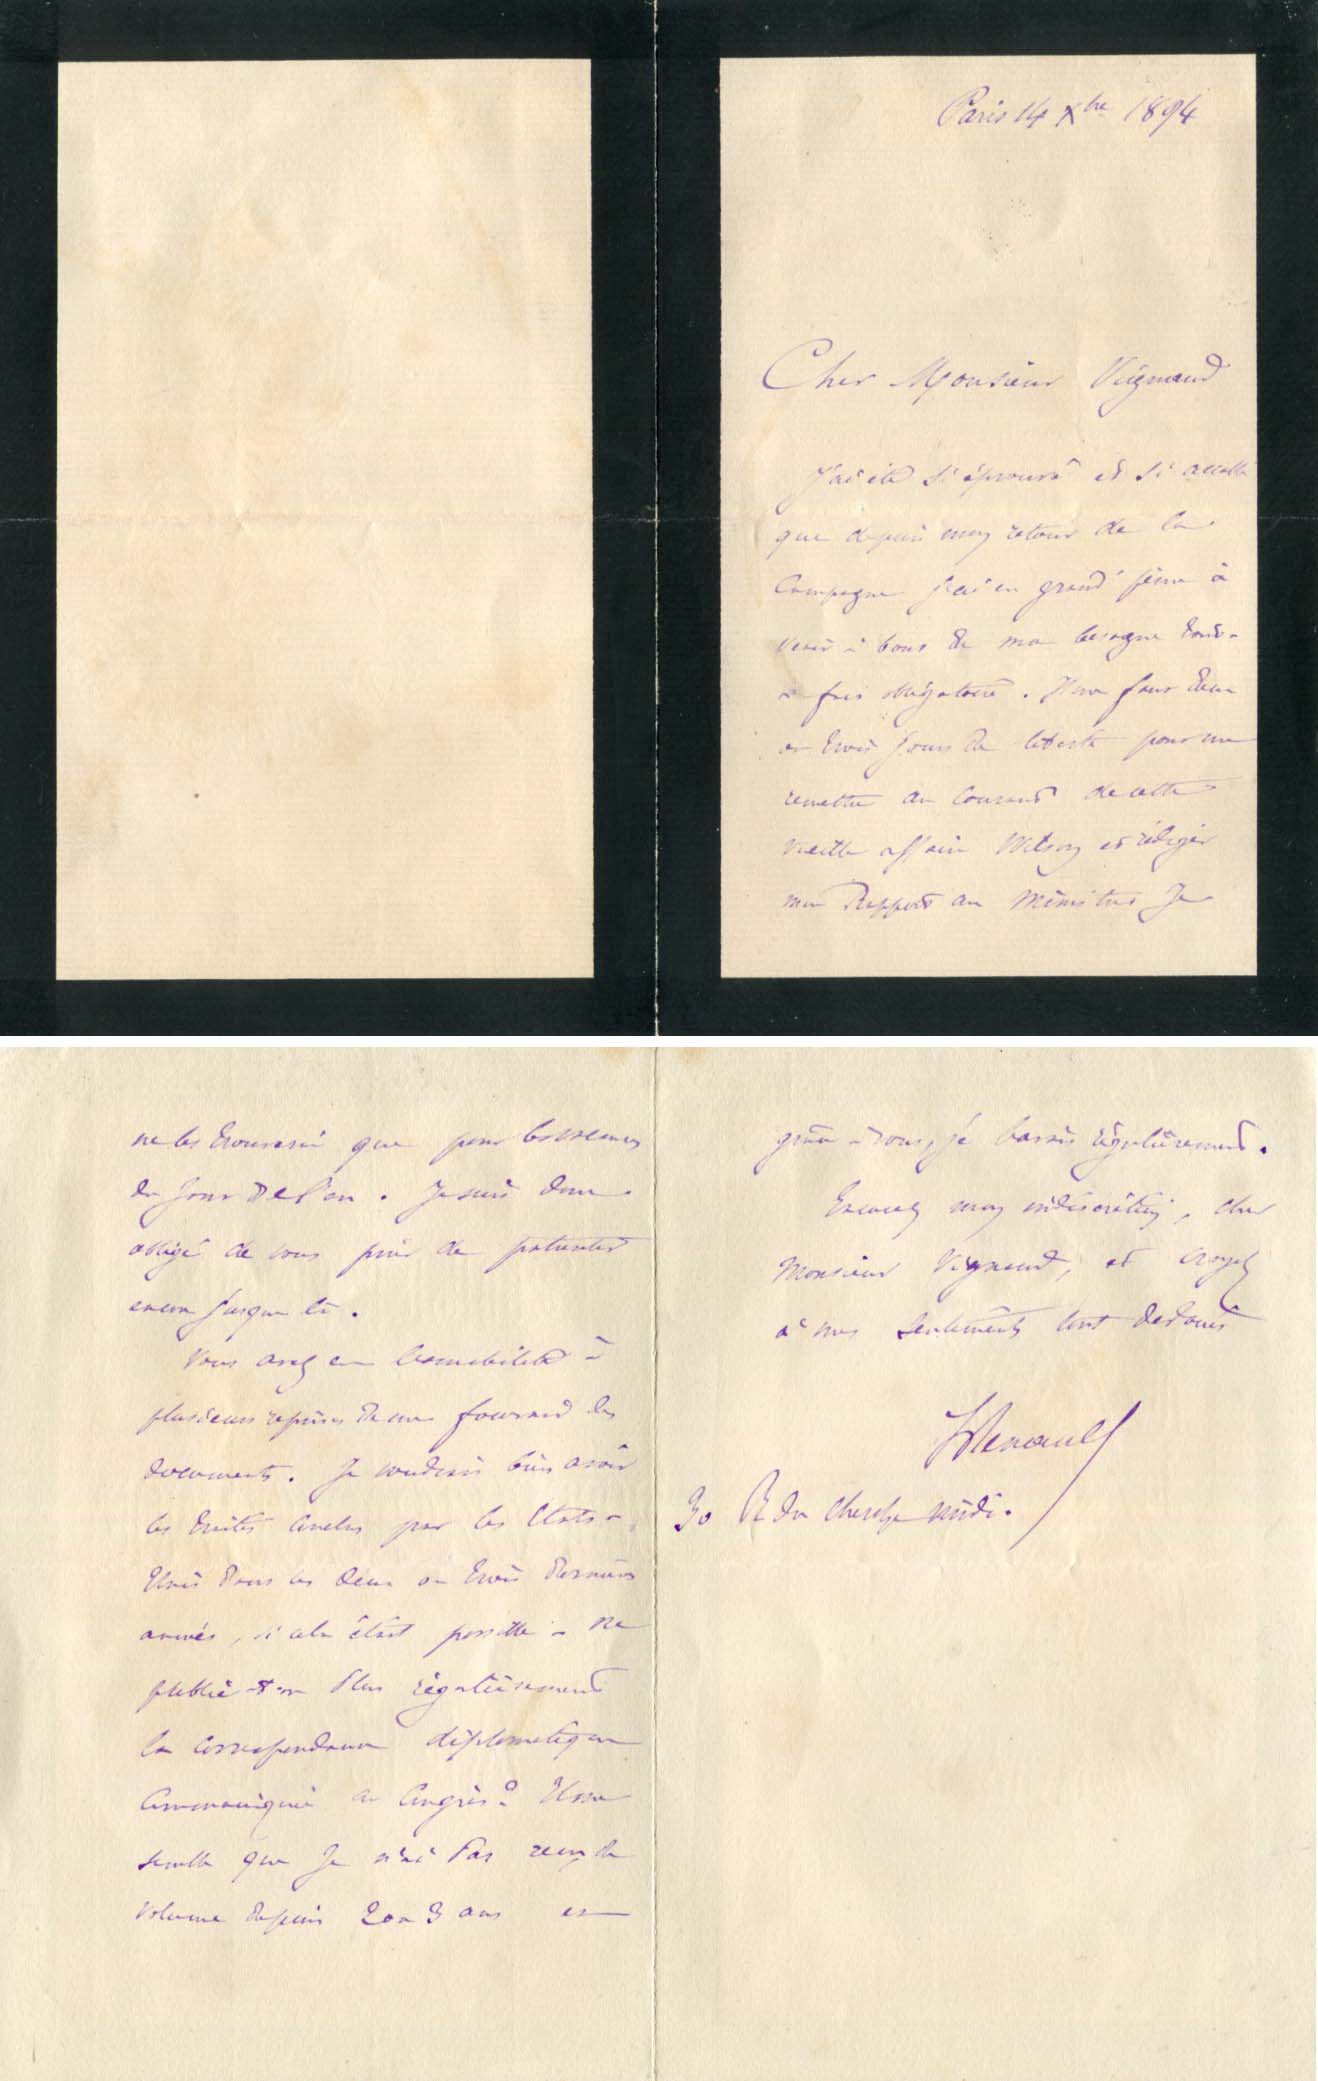 Paris 14 Xbre 1894
Cher Monsieur Vignaud
J'ai été si éprouvé et si accablé
que depuis mon retour de la
campagne j'ai eu grand'peine à
venir à bout de ma besogne tout-
à-fait obligatoire. Il me faut deux
ou trois jours de liberté pour me
remettre au courant de cette
vieille affaire Wilson et rédiger
mon Rapport au Ministre Je
ne les trouverai que pour les vacances
du Jour de l'an. Je suis donc
obligé de vous prier de patienter
encore jusque là.
Vous avez eu l'amabilité à
plusieurs reprises de me fournir des
documents. Je voudrais bien avoir
les traités conclus par les Etats-
Unis dans les deux ou trois dernières
années, si cela était possible - Ne
publie-t-on plus régulièrement
la correspondance diplomatique
communiquée au Congrès? Il me
semble que je n'ai pas reçu de
volume depuis 2 ou 3 ans et
grâce à vous, je l'avais régulièrement.
Excusez mon indiscrétion, cher
Monsieur Vignaud, et croyez
à mes sentiments tout dévoués
L Renault
30 R du Cherche midi.